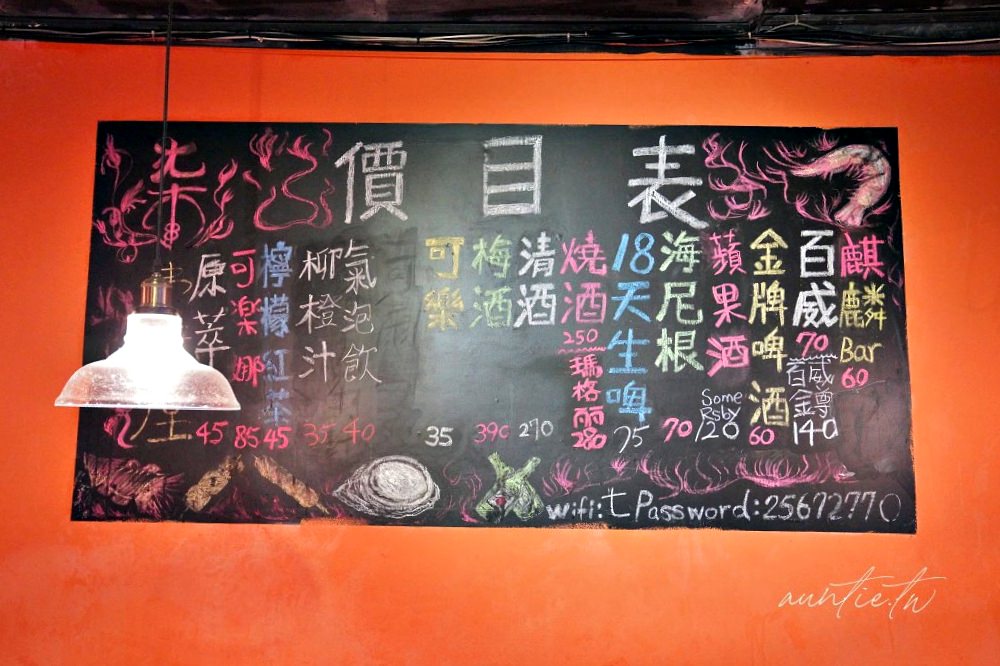 價目表
麒麟Bar 60
百威 70
百威金鐏 140
金牌啤酒 60
蘋果酒 Some Rsby 120
海尼根 70
18天生啤 75
燒酒 250
瑪格麗 280
清酒 270
梅酒 390
可樂 35
氣泡飲 40
柳橙汁 35
檸檬紅茶 45
可樂娜 85
原萃 45
柒
wifi:t Password:25672770
auntie.tw